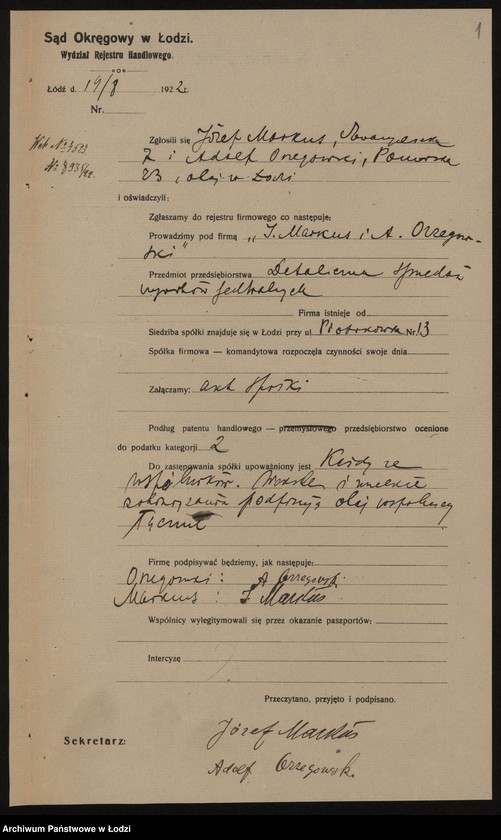 1
Sąd Okręgowy w Łodzi.
Wydział Rejestru Handlowego.
Łódź d. 19/8 1922 r.
Nr.
Zgłosili się Józef Markus,
7 i Adolf Orzegowski, Pomorska
23, obaj w Łodzi
i oświadczyli:
Zgłaszamy do rejestru firmowego co następuje:
Prowadzimy pod firmą „J. Markus i A. Orzegow-
ski"
Przedmiot przedsiębiorstwa Detaliczna sprzedaż
wyrobów
Firma istnieje od
Siedziba spółki znajduje się w Łodzi przy ul Piotrkowska Nr. 13
Spółka firmowa — komandytowa rozpoczęła czynności swoje dnia
Załączamy: akt spółki
Podług patentu handlowego — przemysłowego przedsiębiorstwo ocenione
do podatku kategorji 2
Do zastępowania spółki upoważniony jest Każdy ze
wspólników. Weksle i wszelkie
zobowiązania podpisują obaj wspólnicy
łącznie
Firmę podpisywać będziemy, jak następuje:
Orzegowski: A Orzegowski
Markus: J Markus
Wspólnicy wylegitymowali się przez okazanie paszportów:
Intercyzę
Przeczytano, przyjęto i podpisano.
Józef Markus
Sekretarz:
Adolf Orzegowski
Archiwum Państwowe w Łodzi